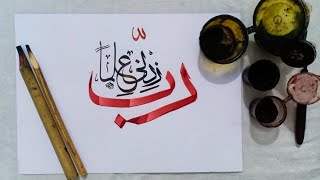 رَبِّ زِدْنِي عِلْماً